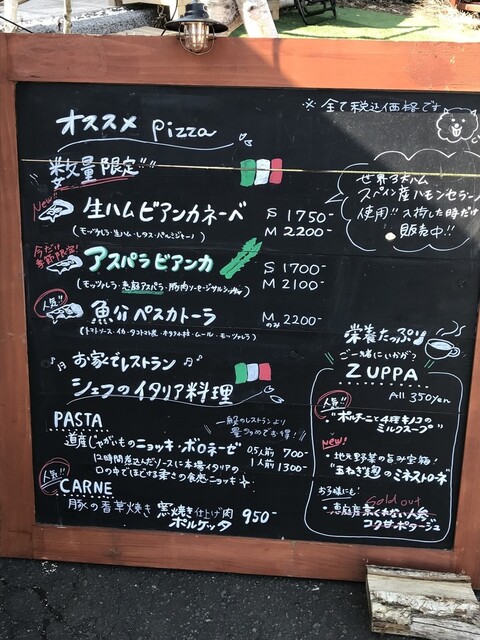 ※全て税込価格です
オススメ pizza
数量限定!!
世界3大ハム
スペイン産ハモンセラーノ
使用!! 入荷した時だけ
販売中!!
New!
生ハムビアンカネーベ S 1750-
M 2200-
(モッツァレラ・生ハム・レタス・パルミジャーノ)
今だけ
季節限定!
アスパラビアンカ S 1700-
M 2100-
(モッツァレラ・恵庭アスパラ・
人気!!
魚介ペスカトーラ M のみ 2200-
(トマトソース・イカ・
ムール・モッツァレラ)
お家でレストラン
シェフのイタリア料理
PASTA
一般のレストランより
量多めでお得!
道産じゃがいものニョッキ・ボロネーゼ 0.5人前 700-
1人前 1300-
12時間煮込んだソースに本場イタリアの
口の中でほどける
食感ニョッキ
人気!!
CARNE
豚の香草焼き 窯焼き仕上げ肉 950-
ポルケッタ
栄養たっぷり
ご一緒にいかが?
ZUPPA
All 350yen
人気!!
"ポルチーニと4種キノコの
ミルクスープ"
new!
地元野菜の旨み宝箱!
"玉ねぎ麹のミネストローネ"
お子様にも!
Sold out
・恵庭産
くれない人参
コクサポタージュ